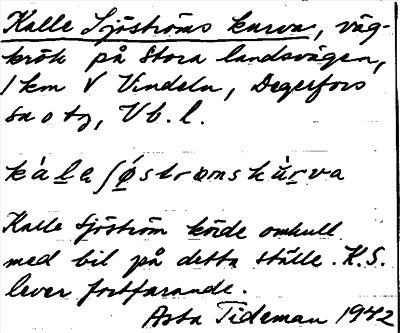 Kalle Sjöströms kurva, väg-
krök på Stora landsvägen,
1 km V Vindeln, Degerfors
sn o tg, Vb. l.
Kalle Sjöström körde omkull
med bil på detta ställe. K.S.
lever fortfarande.
Asta Tideman 1942